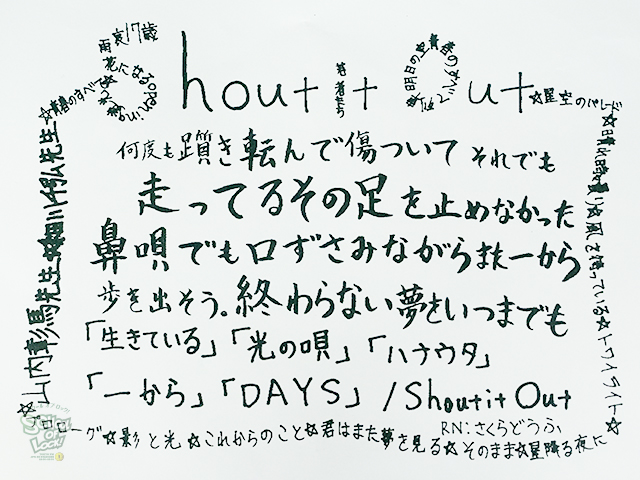 Shout it Out
雨哀17歳
花になる
opening
若者たち
青春のすべて
☆星空のパレード
☆青春のすべて☆
山内彰馬先生
☆晴れ時時曇り☆風を待っている☆トワイライト☆
何度も躓き転んで傷ついて それでも
走ってるその足を止めなかった
鼻唄でも口ずさみながらまた一から
歩を出そう。終わらない夢をいつまでも
「生きている」「光の唄」「ハナウタ」
「一から」「DAYS」/Shout it Out
RN:さくらどうふ
☆プロローグ☆影と光☆これからのこと☆君はまた夢を見る☆そのまま☆星降る夜に
SCHOOL OF LOCK!